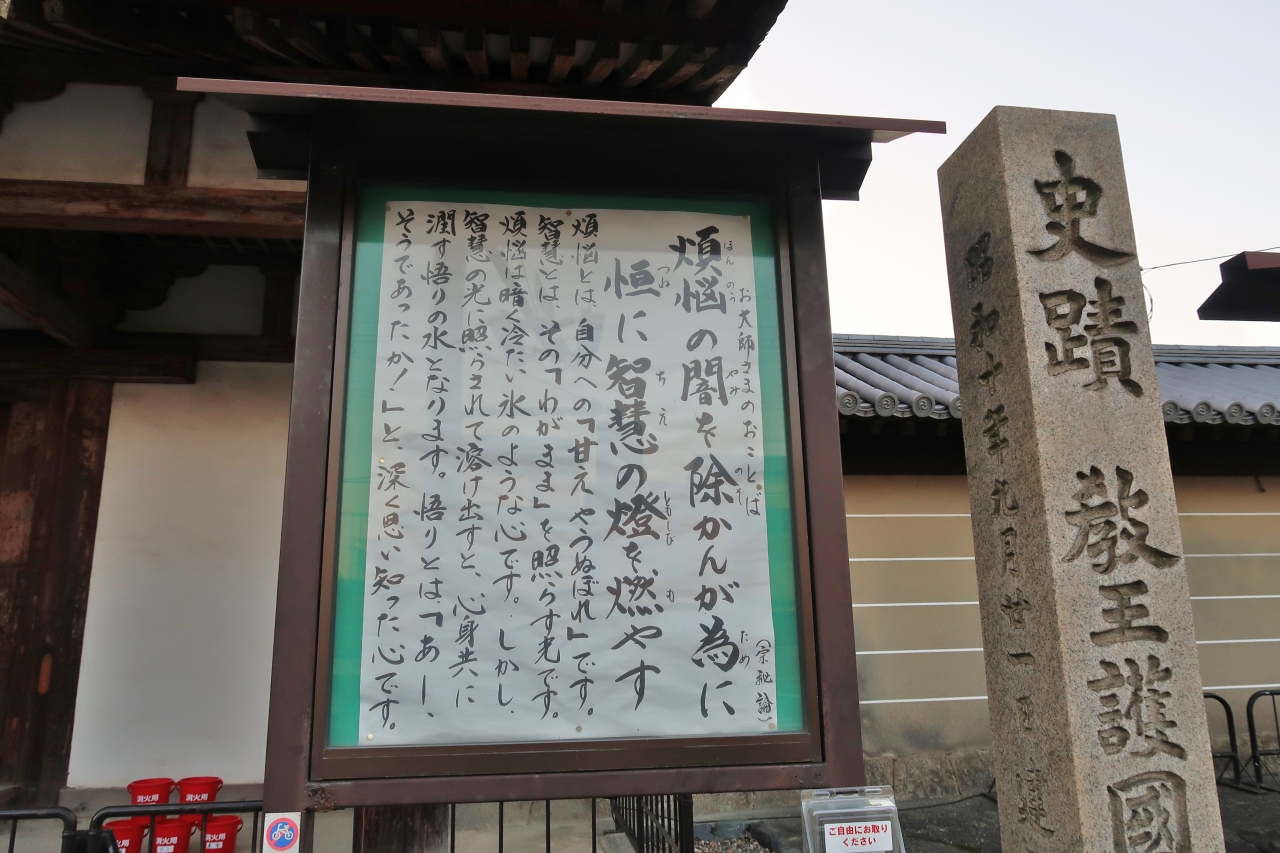 お大師さまのおことば
煩悩の闇を除かんが為に
ほんのう
やみ
のぞ
ため
(宗秘論)
恒に智慧の燈を燃やす
つね
ちえ
ともしび
も
煩悩とは、自分への「甘えやうぬぼれ」です。
智慧とは、その「わがまま」を照らす光です。
煩悩は暗く冷たい氷のような心です。しかし、
智慧の光に照らされて溶け出すと、心身共に
潤す悟りの水となります。悟りとは、「あー、
そうであったか!」と、深く思い知った心です。
史蹟 教王護國
昭和十年
月廿一日
建
消火用
消火用
消火用
消火用
消火用
ご自由にお取り
ください